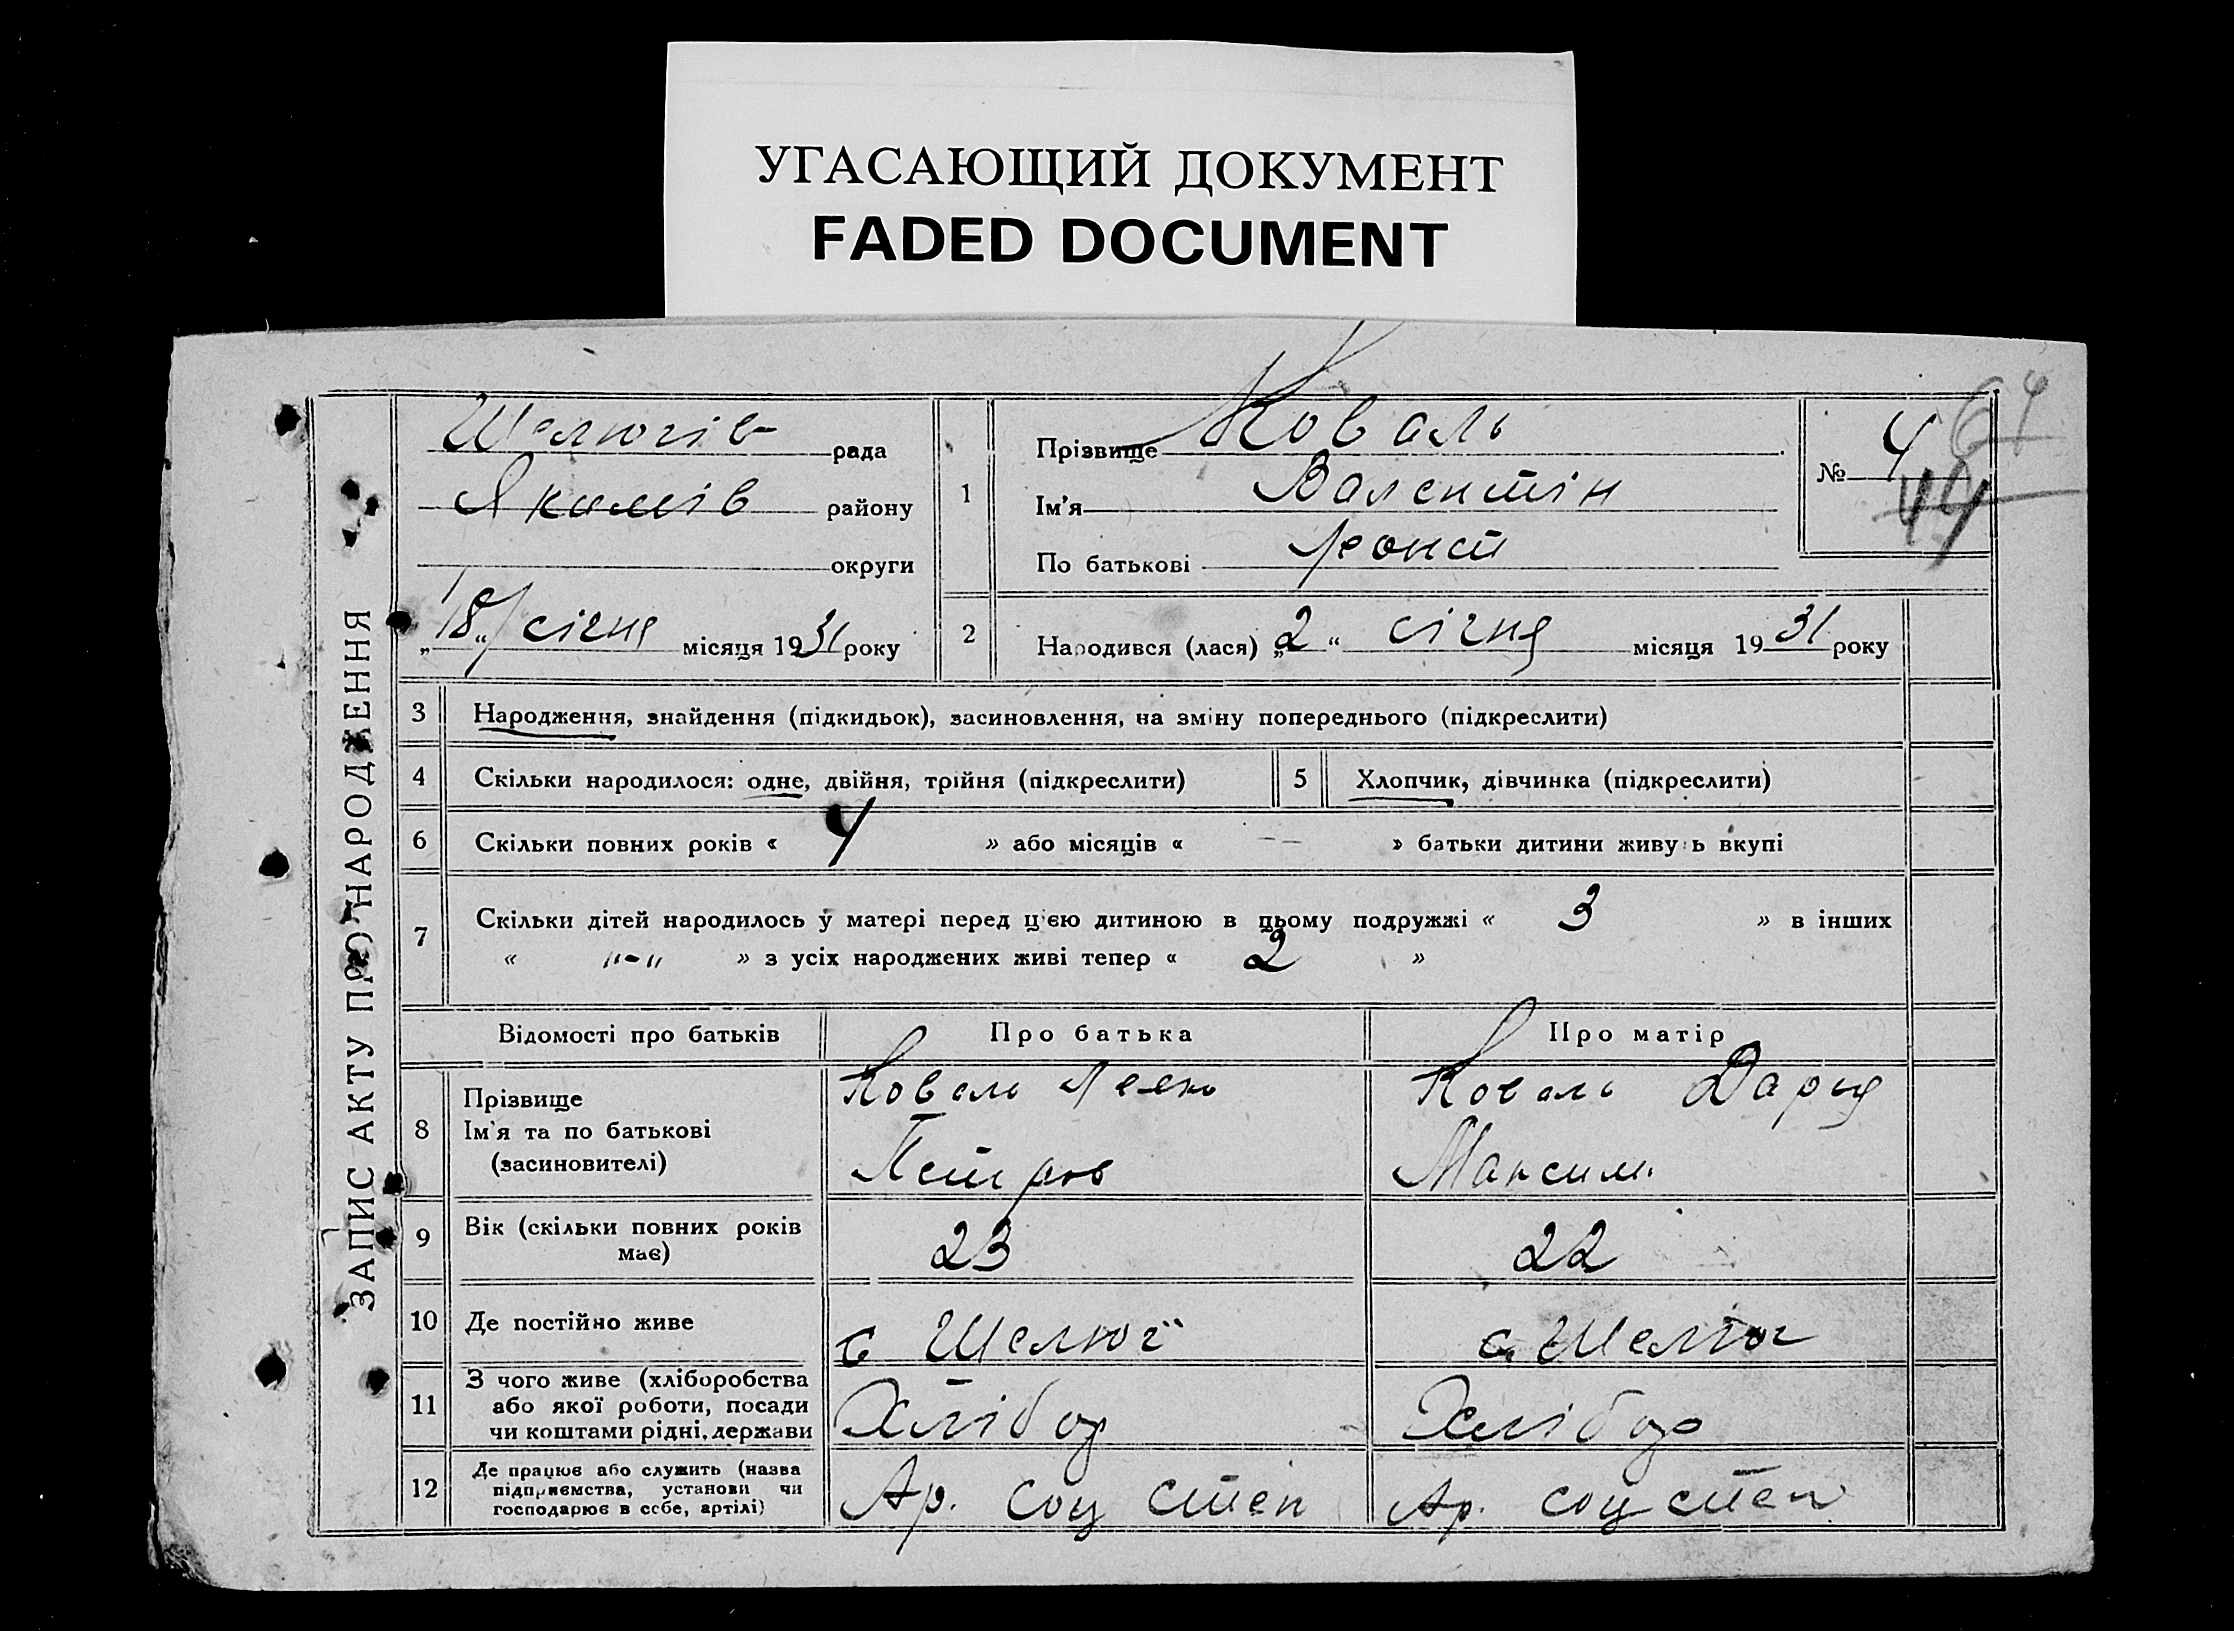 УГАСАЮЩИЙ ДОКУМЕНТ
FADED DOCUMENT
ЗАПИС АКТУ ПРО НАРОДЖЕННЯ
Шелюгів рада
Якимів району
округи
„18“ січня місяця 1931 року
1
Прізвище Коваль
Ім’я Валентін
По батькові Леонт
№ 4
64
44
2 Народився (лася) „2“ січня місяця 1931 року
3 Народження, знайдення (підкидьок), засиновлення, на зміну попереднього (підкреслити)
4 Скільки народилося: одне, двійня, трійня (підкреслити)
5 Хлопчик, дівчинка (підкреслити)
6 Скільки повних років « 4 » або місяців « — » батьки дитини живуть вкупі
7 Скільки дітей народилось у матері перед цією дитиною в цьому подружжі « 3 » в інших
« „-„ » з усіх народжених живі тепер « 2 »
Відомості про батьків Про батька Про матір
8 Прізвище
Ім’я та по батькові
(засиновителі)
Коваль
Петров
Коваль Дария
Максим.
9 Вік (скільки повних років
має)
23 22
10 Де постійно живе с Шелюг с. Шелюг
11 З чого живе (хліборобства
або якої роботи, посади
чи коштами рідні, держави
Хлібор Хлібор
12 Де працює або служить (назва
підприємства, установи чи
господарює в себе, артілі)
Ар. соц степ Ар. соц степ